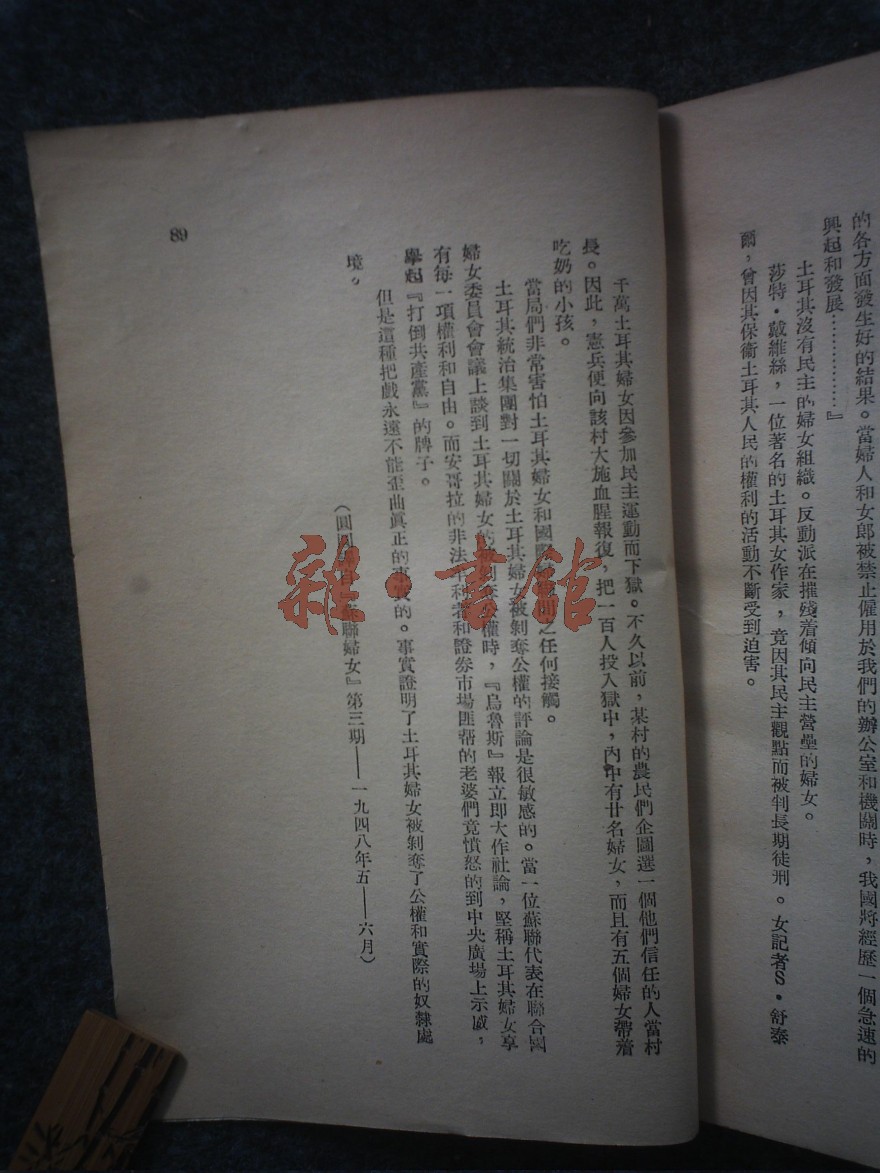 的各方面發生好的結果。當婦人和女郎被禁止僱用於我們的辦公室和機關時，我國將經歷一個急速的
興起和發展……………』
土耳其沒有民主的婦女組織。反動派在摧殘着傾向民主營壘的婦女。
莎特·戴維絲，一位著名的土耳其女作家，竟因其民主觀點而被判長期徒刑。女記者S·舒泰
爾，曾因其保衛土耳其人民的權利的活動不斷受到迫害。
千萬土耳其婦女因參加民主運動而下獄。不久以前，某村的農民們企圖選一個他們信任的人當村
長。因此，憲兵便向該村大施血腥報復，把一百人投入獄中，內中有廿名婦女，而且有五個婦女帶着
吃奶的小孩。
當局們非常害怕土耳其婦女和國際 之任何接觸。
土耳其統治集團對一切關於土耳其婦女被剝奪公權的評論是很敏感的。當一位蘇聯代表在聯合國
婦女委員會會議上談到土耳其婦女的被剝奪公權時，『烏魯斯』報立即大作社論，堅稱土耳其婦女享
有每一項權利和自由。而安哥拉的非法牟利者和證券市場匪幫的老婆們竟憤怒的到中央廣場上示威，
舉起『打倒共產黨』的牌子。
但是這種把戲永遠不能歪曲眞正的事實的。事實證明了土耳其婦女被剝奪了公權和實際的奴隸處
境。
（圓圓 聯婦女』第三期——一九四八年五——六月）
89
雜·書館